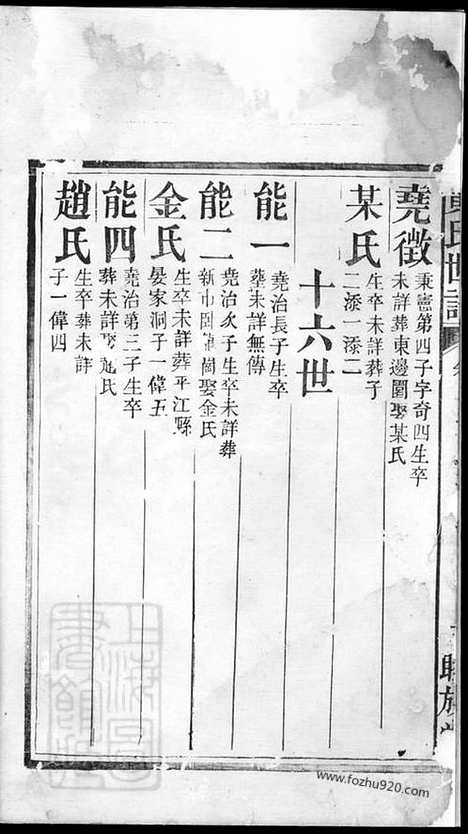 堯徵
秉憲第四子字奇四生卒
未詳葬東邊園娶某氏
某氏
生卒未詳葬子
二添一添二
十六世
能一
堯治長子生卒
葬未詳無傳
能二
堯治次子生卒未詳葬
新市園 崗娶金氏
金氏
生卒未詳葬平江縣
晏家洞子一偉五
能四
堯治第三子生卒
葬未詳娶趙氏
趙氏
生卒葬未詳
子一偉四
氏世譜
上海圖書館藏
www.fozhu920.com